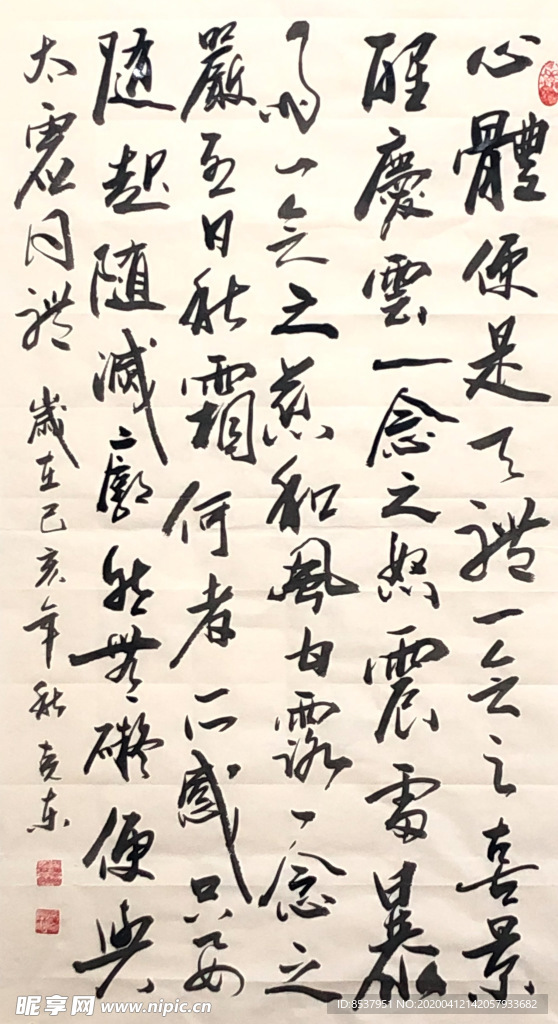 心體便是天體一念之喜景
醒慶雲一念之怒震雷暴
雨一念之慈和風甘露一念之
嚴烈日秋霜何者所感只要
随起随滅廓然無礙便與
太虛同體
歲在己亥年秋克东
昵享网 www.nipic.cn
ID:8537951 NO:20200412142057933682